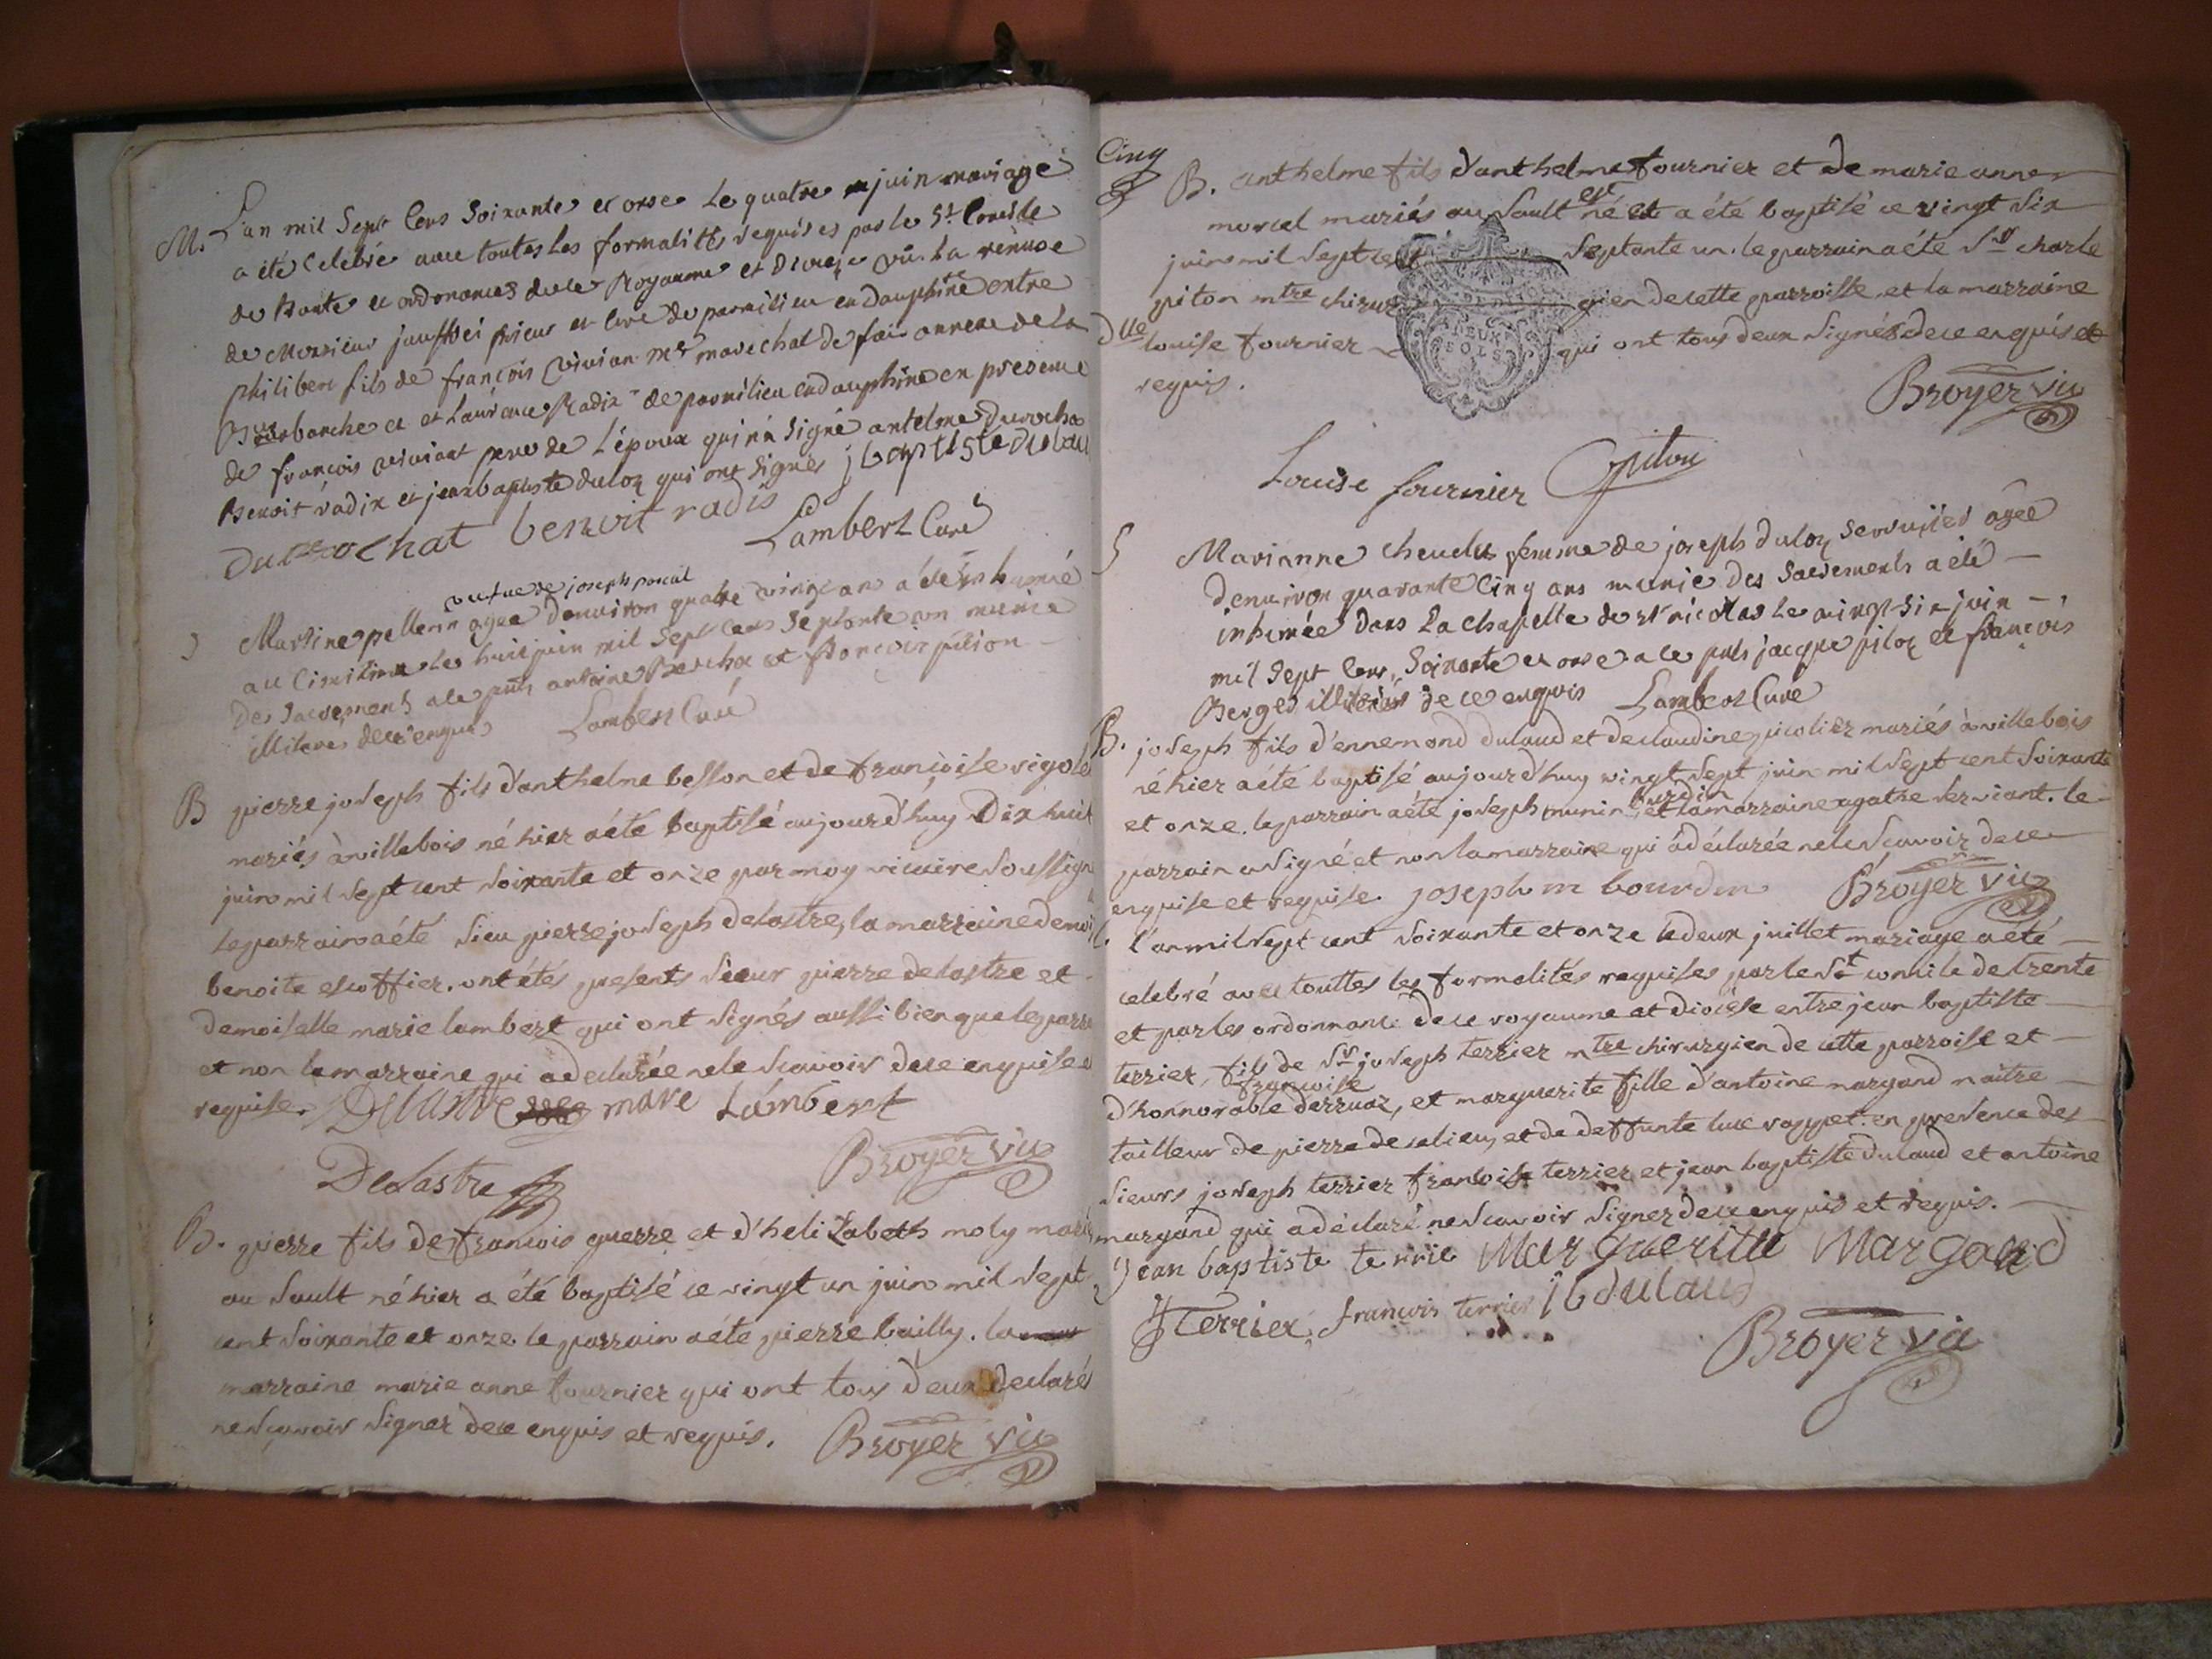 M. L'an mil Sept Cens Soixante et onse Le quatre juin mariage
a été Celebré avec toutes Les formalités requises par le St. Concile
de Trante et ordonances de ce Royaume et Diocese vû La remise
de Monsieur jauffrei prieur et Curé de parmilieu en Dauphiné entre
philibert fils de françois vivian me marechal de fair annexe de la
et Laurence Radix de parmilieu en dauphiné en presence
de françois viviant pere de L'époux qui n'a Signé antelme Durochat
Benoit radix et jean baptiste duloz qui ont Signés j baptiste dulau
Durochat benoit radis
Lambert Curé
veufue de joseph pascal
Martine pellerin agée denuiron quatre vingt an a été inhumée
au Cimitiere Le huit juin mil Sept Cens Septante un munie
Des Sacrements a ce pnts antoine Berchox et françois pition
illiterés de ce enquis Lambert Curé
B pierre joseph fils d'anthelme besson et de françoise rigole
mariés à villebois né hier a été baptisé aujourd'huy Dix huit
juin mil Sept cent Soixante et onze par moy vicaire Soussigné
le parrain a été Sieu pierre joseph delastre, la marraine demoi
benoite escoffier. ont étés presents Sieur pierre delastre et
demoiselle marie lambert qui ont Signés aussi bien que le parra
et non la marraine qui a declarée ne le Scavoir de ce enquise et
requise. Delastre marie Lámbert
Delastre Broyer vic
B. pierre fils de francois guerre et d'helizabeth moly marié
au Sault né hier a été baptisé ce vingt un juin mil Sept
cent Soixante et onze le parrain a été pierre bailly. la
marraine marie anne tournier qui ont tous deux declarés
ne Scavoir Signer de ce enquis et requis. Broyer vic
Cinq
B. anthelme fils d'anthelme fournier et de marie anne
morcel mariés au Sault est né et a été baptisé ce vingt Six
juin mil Sept cent Septante un. le parrain a été Sr charle
piton mtre chirurgien de cette parroisse et la marraine
Dlle louise fournier qui ont tous deux Signés de ce enquis et
requis. Broyer vic
DEUX SOLS
Louise fournier Cpiton
S Marianne Cheudu femme de joseph duloz serrurier agée
denuiron quarante Cinq ans munie des Sacrements a été
inhumée dans La Chapelle de st nicolas Le vingt Six juin
mil Sept Cens Soixante et onse a ce pnts jacque piloz et françois
Berger illiterés de ce enquis Lambert Curé
B. joseph fils d'ennemond dulaud et de claudine picolier mariés à villebois
né hier a été baptisé aujourd'huy vingt Sept juin mil Sept cent Soixante
et onze. le parrain a été joseph munin burdin et la marraine agathe Serviant. le
parrain a Signé et non la marraine qui à déclarée ne le Scavoir de ce
enquise et requise. joseph m bourdin Broyer vic
l'an mil Sept cent Soixante et onze le deux juillet mariage a été
celebré avec touttes les formalités requises par le St concile de trente
et par les ordonnance de ce royaume et diocèse entre jean baptiste
terrier, fils de Sr joseph terrier mtre chirurgien de cette parroisse et
d'honnorable françoise derruaz, et marguerite fille d'antoine margand maitre
tailleur de pierre de ce lieu, et de deffunte luce rappet. en presence des
Sieurs joseph terrier françois terrier et jean baptiste dulaud et antoine
margand qui a déclaré ne Scavoir Signer de ce enquis et requis.
Jean baptiste terrie Marguerite Margand
JTerrier, françois terrier jb dulaud
Broyer vic